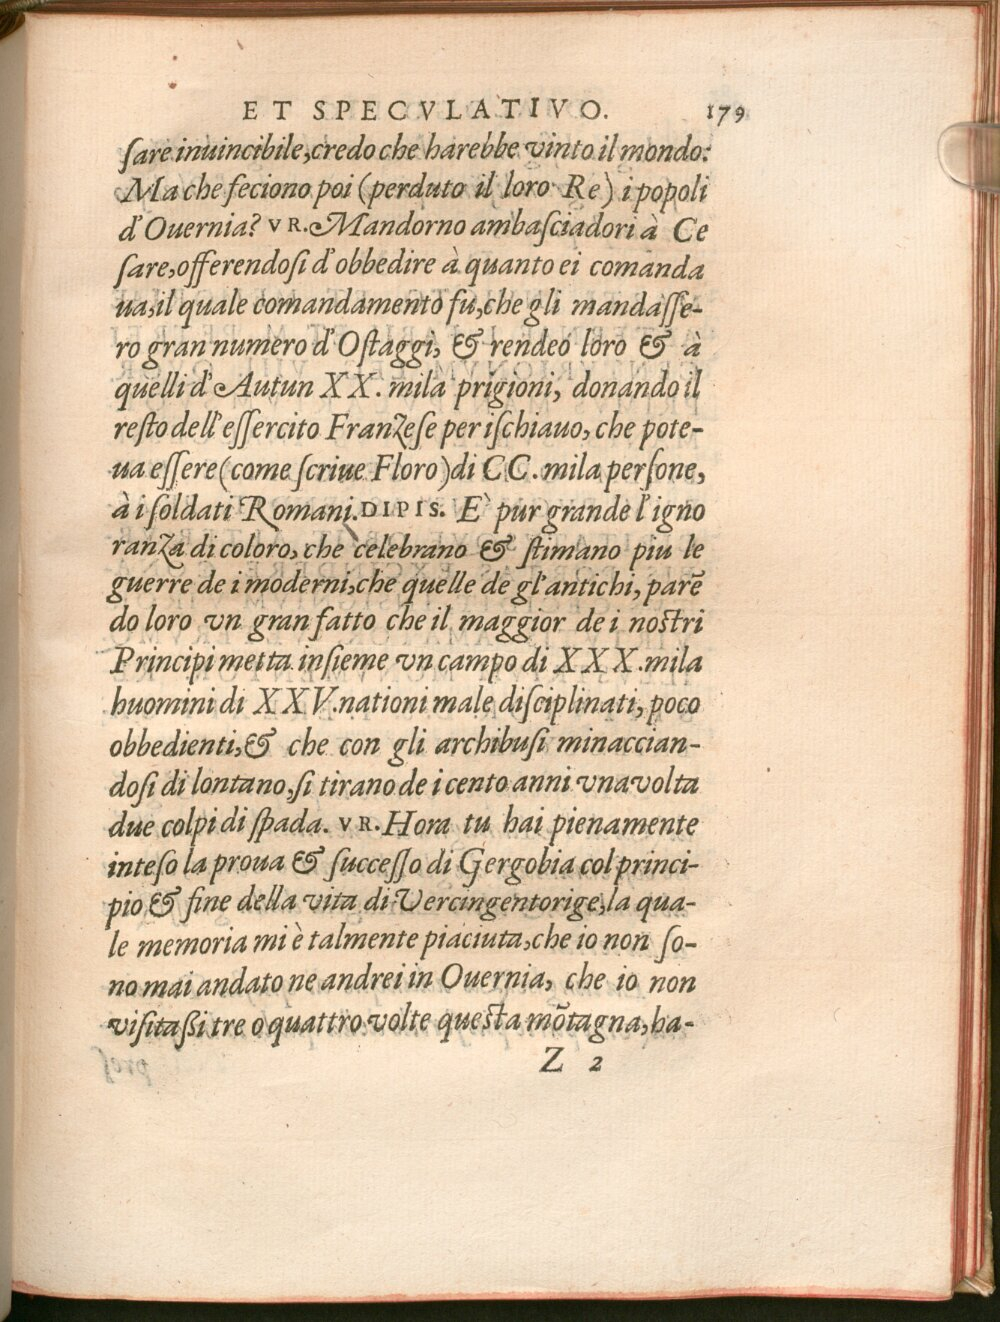 ET SPECVLATIVO. 179
ſare inuincibile, credo che harebbe vinto il mondo:
Ma che feciono poi (perduto il loro Re) i popoli
d'Ouernia? VR. Mandorno ambaſciadori à Ce
ſare, offerendoſi d'obbedire à quanto ei comanda
ua, il quale comandamento fu, che gli mandaſſe-
ro gran numero d'Oſtaggì, & rendeo loro & à
quelli d'Autun XX. mila prigioni, donando il
reſto dell'eſſercito Franzeſe per iſchiauo, che pote-
ua eſſere (come ſcriue Floro) di CC. mila perſone,
à i ſoldati Romani. DIPIS. E' pur grande l'igno
ranza di coloro, che celebrano & ſtimano piu le
guerre de i moderni, che quelle de gl'antichi, parẽ
do loro vn gran fatto che il maggior de i noſtri
Principi metta inſieme vn campo di XXX. mila
huomini di XXV. nationi male diſciplinati, poco
obbedienti, & che con gli archibuſi minaccian-
doſi di lontano, ſi tirano de i cento anni vna volta
due colpi di ſpada. VR. Hora tu hai pienamente
inteſo la proua & ſucceſſo di Gergobia col princi-
pio & fine della vita di Vercingentorige, la qua-
le memoria mi è talmente piaciuta, che io non ſo-
no mai andato ne andrei in Ouernia, che io non
viſitaßi tre o quattro volte queſta mõtagna, ha-
Z 2